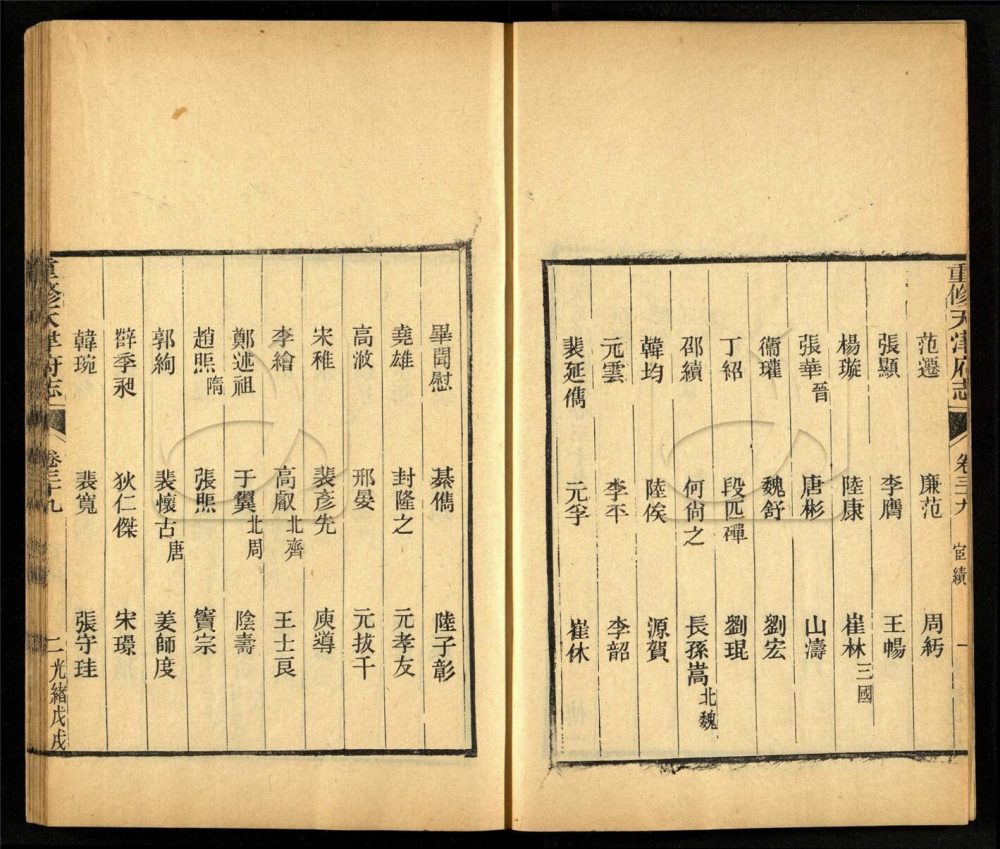 重修天津府志 卷三十九 宦績 一
范遷 廉范 周紆
張顯 李膺 王暢
楊璇 陸康 崔林三國
張華晉 唐彬 山濤
衞瓘 魏舒 劉宏
丁紹 段匹磾 劉琨
邵續 何尙之 長孫嵩北魏
韓均 陸俟 源賀
元雲 李平 李韶
裴延儁 元孚 崔休
畢聞慰 綦儁 陸子彰
堯雄 封隆之 元孝友
高㳖 邢晏 元拔干
宋稚 裴彥先 庾導
李繪 高叡北齊 王士良
鄭述祖 于翼北周 陰壽
趙煚隋 張煚 竇宗
郭絢 裴懷古唐 姜師度
薛季昶 狄仁傑 宋璟
韓琬 裴寬 張守珪
重修天津府志 卷三十九 二 光緒戊戌